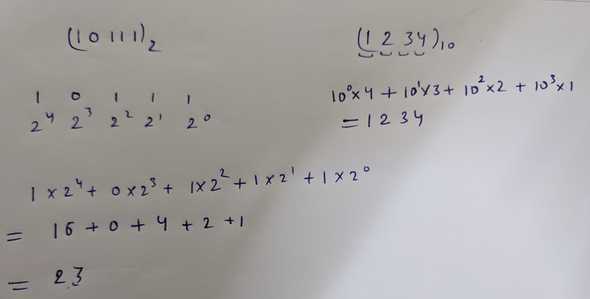 (10111)₂
1 0 1 1 1
2⁴ 2³ 2² 2¹ 2⁰
(1234)₁₀
10⁰×4 + 10¹×3 + 10²×2 + 10³×1
= 1234
1 × 2⁴ + 0×2³ + 1×2² + 1×2¹ + 1×2⁰
= 16 + 0 + 4 + 2 + 1
= 23